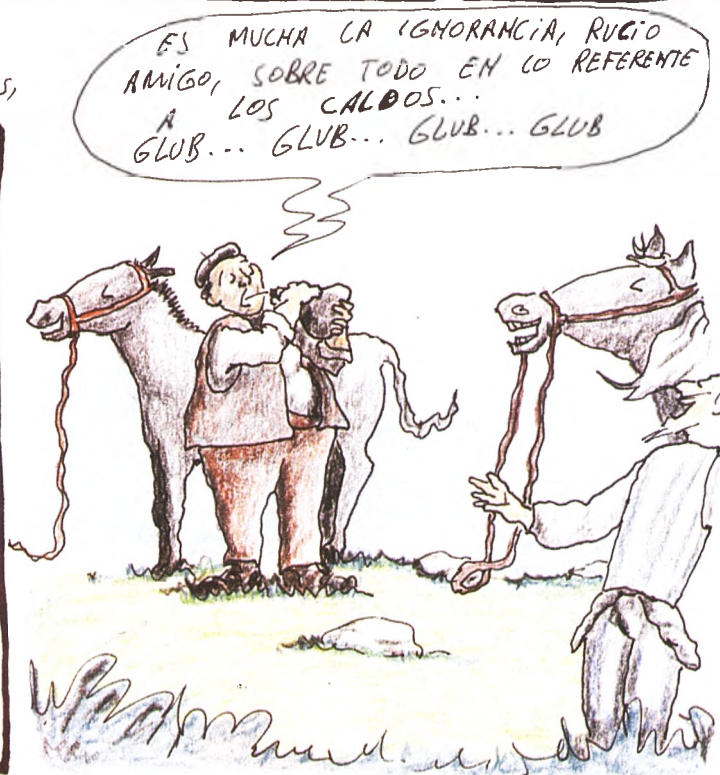 s,
ES MUCHA LA IGNORANCIA, RUCIO
AMIGO, SOBRE TODO EN LO REFERENTE
A LOS CALDOS...
GLUB... GLUB... GLUB... GLUB